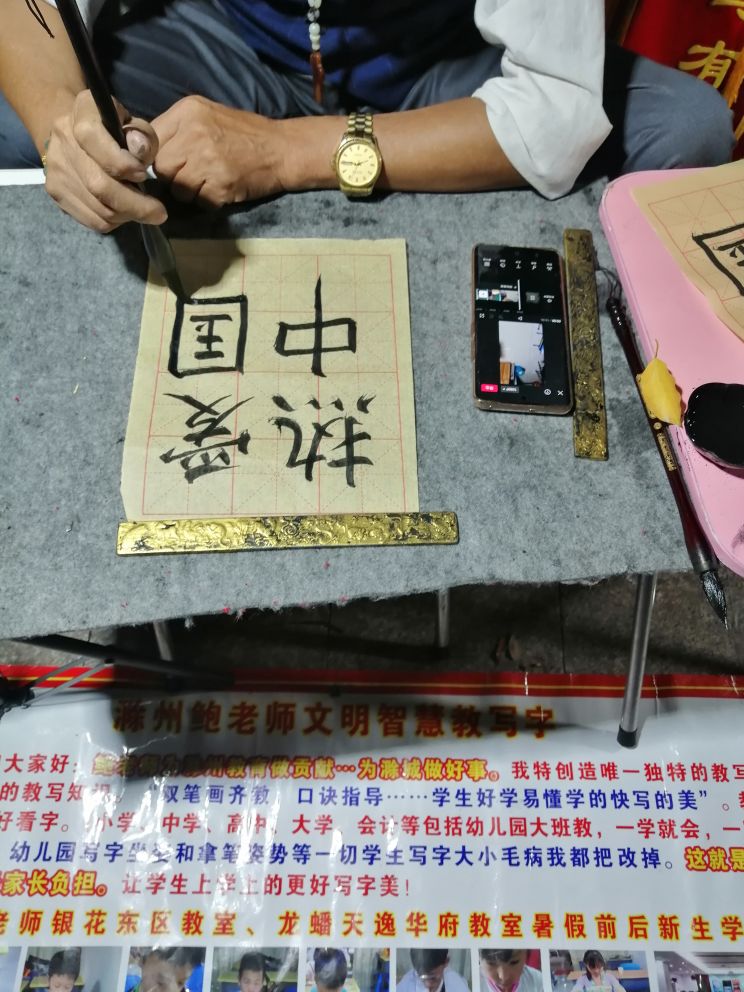 有
热爱
中国
滁州鲍老师文明智慧教写字
大家好：鲍老师为滁州教育做贡献…为滁城做好事。我特创造唯一独特的教写
的教写知识。“双笔画齐教 口诀指导……学生好学易懂学的快写的美”。
好看字。小学、中学、高中、大学、会计等包括幼儿园大班教，一学就会，一
幼儿园写字坐姿和拿笔姿势等一切学生写字大小毛病我都把改掉。这就是
家长负担。让学生上学上的更好写字美！
老师银花东区教室、龙蟠天逸华府教室暑假前后新生学